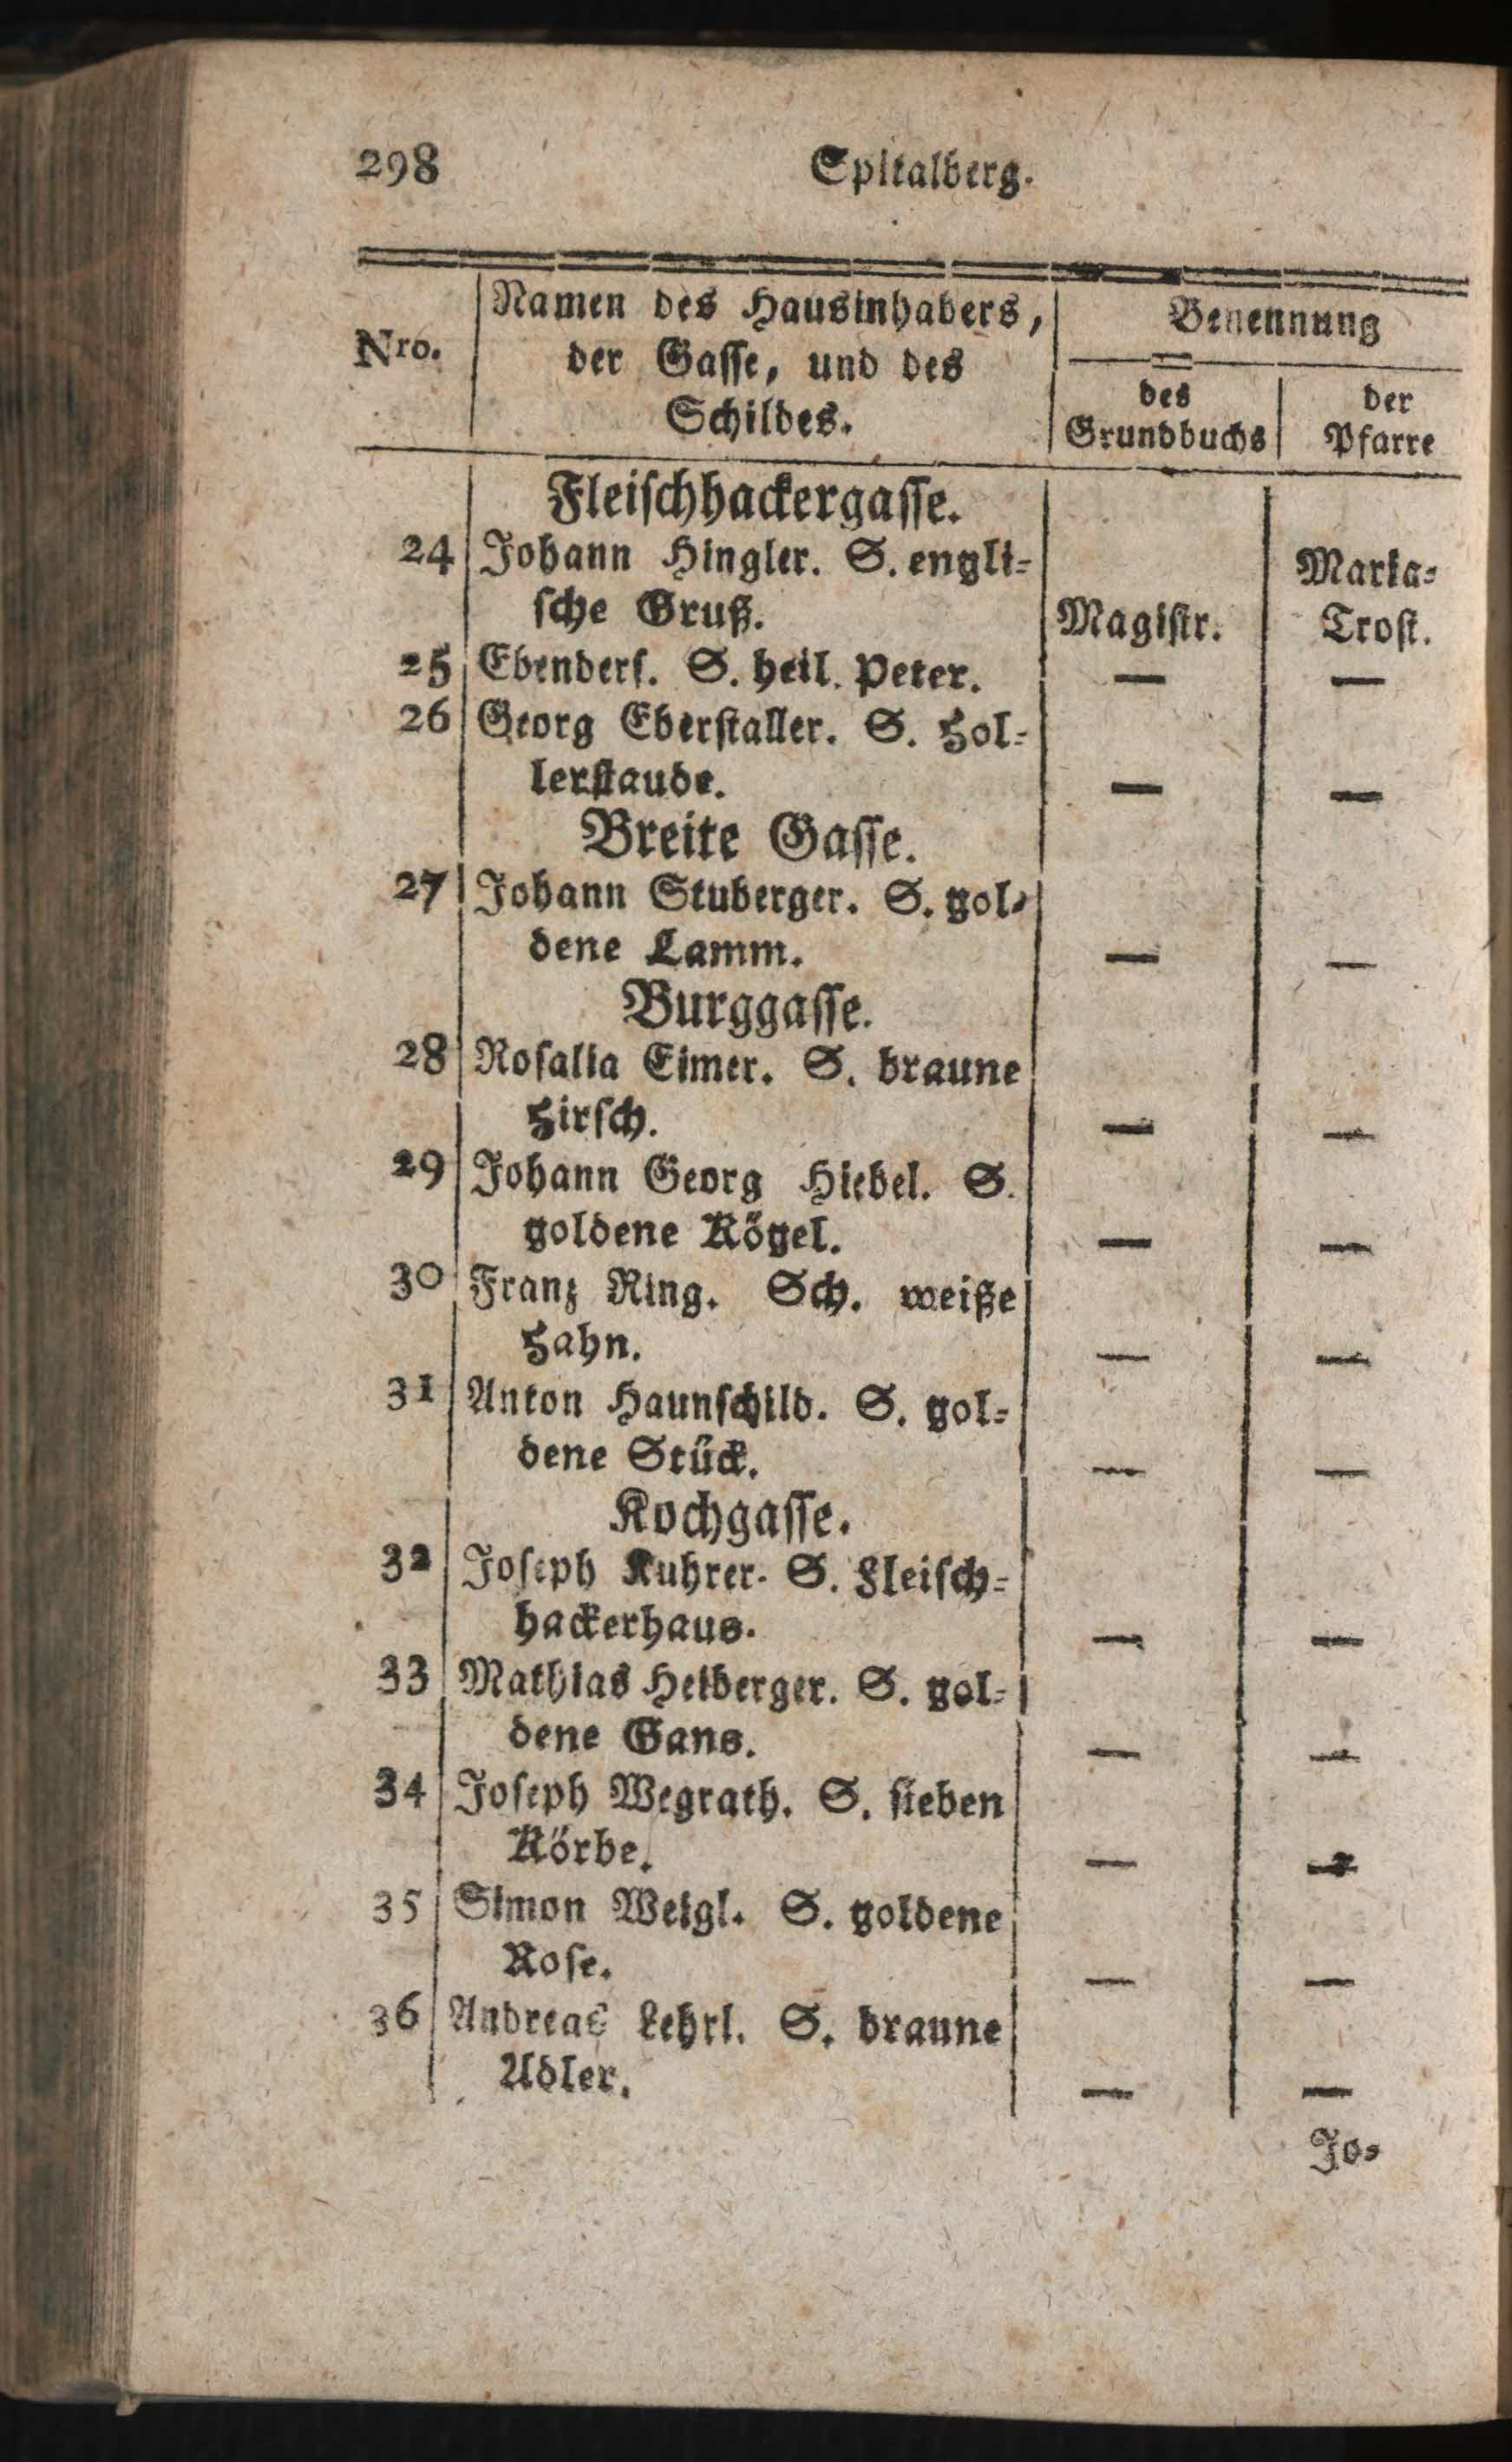 298 Spitalberg.
Nro.
Namen des Hausinhabers,
der Gasse, und des
Schildes.
Benennung
des
Grundbuchs
der
Pfarre
Fleischhackergasse.
24 Johann Hingler. S. engli-
sche Gruß.
Magistr.
Maria-
Trost.
25 Ebenders. S. heil. Peter. — —
26 Georg Eberstaller. S. Hol-
lerstaude. — —
Breite Gasse.
27 Johann Stuberger. S. gol-
dene Lamm. — —
Burggasse.
28 Rosalia Eimer. S. braune
Hirsch. — —
29 Johann Georg Hiebel. S.
goldene Kögel. — —
30 Franz Ring. Sch. weiße
Hahn. — —
31 Anton Haunschild. S. gol-
dene Stück. — —
Kochgasse.
32 Joseph Kuhrer. S. Fleisch-
hackerhaus. — —
33 Mathias Heiberger. S. gol-
dene Gans. — —
34 Joseph Wegrath. S. sieben
Körbe. — —
35 Simon Weigl. S. goldene
Rose. — —
36 Andreas Lehrl. S. braune
Adler. — —
Jo-